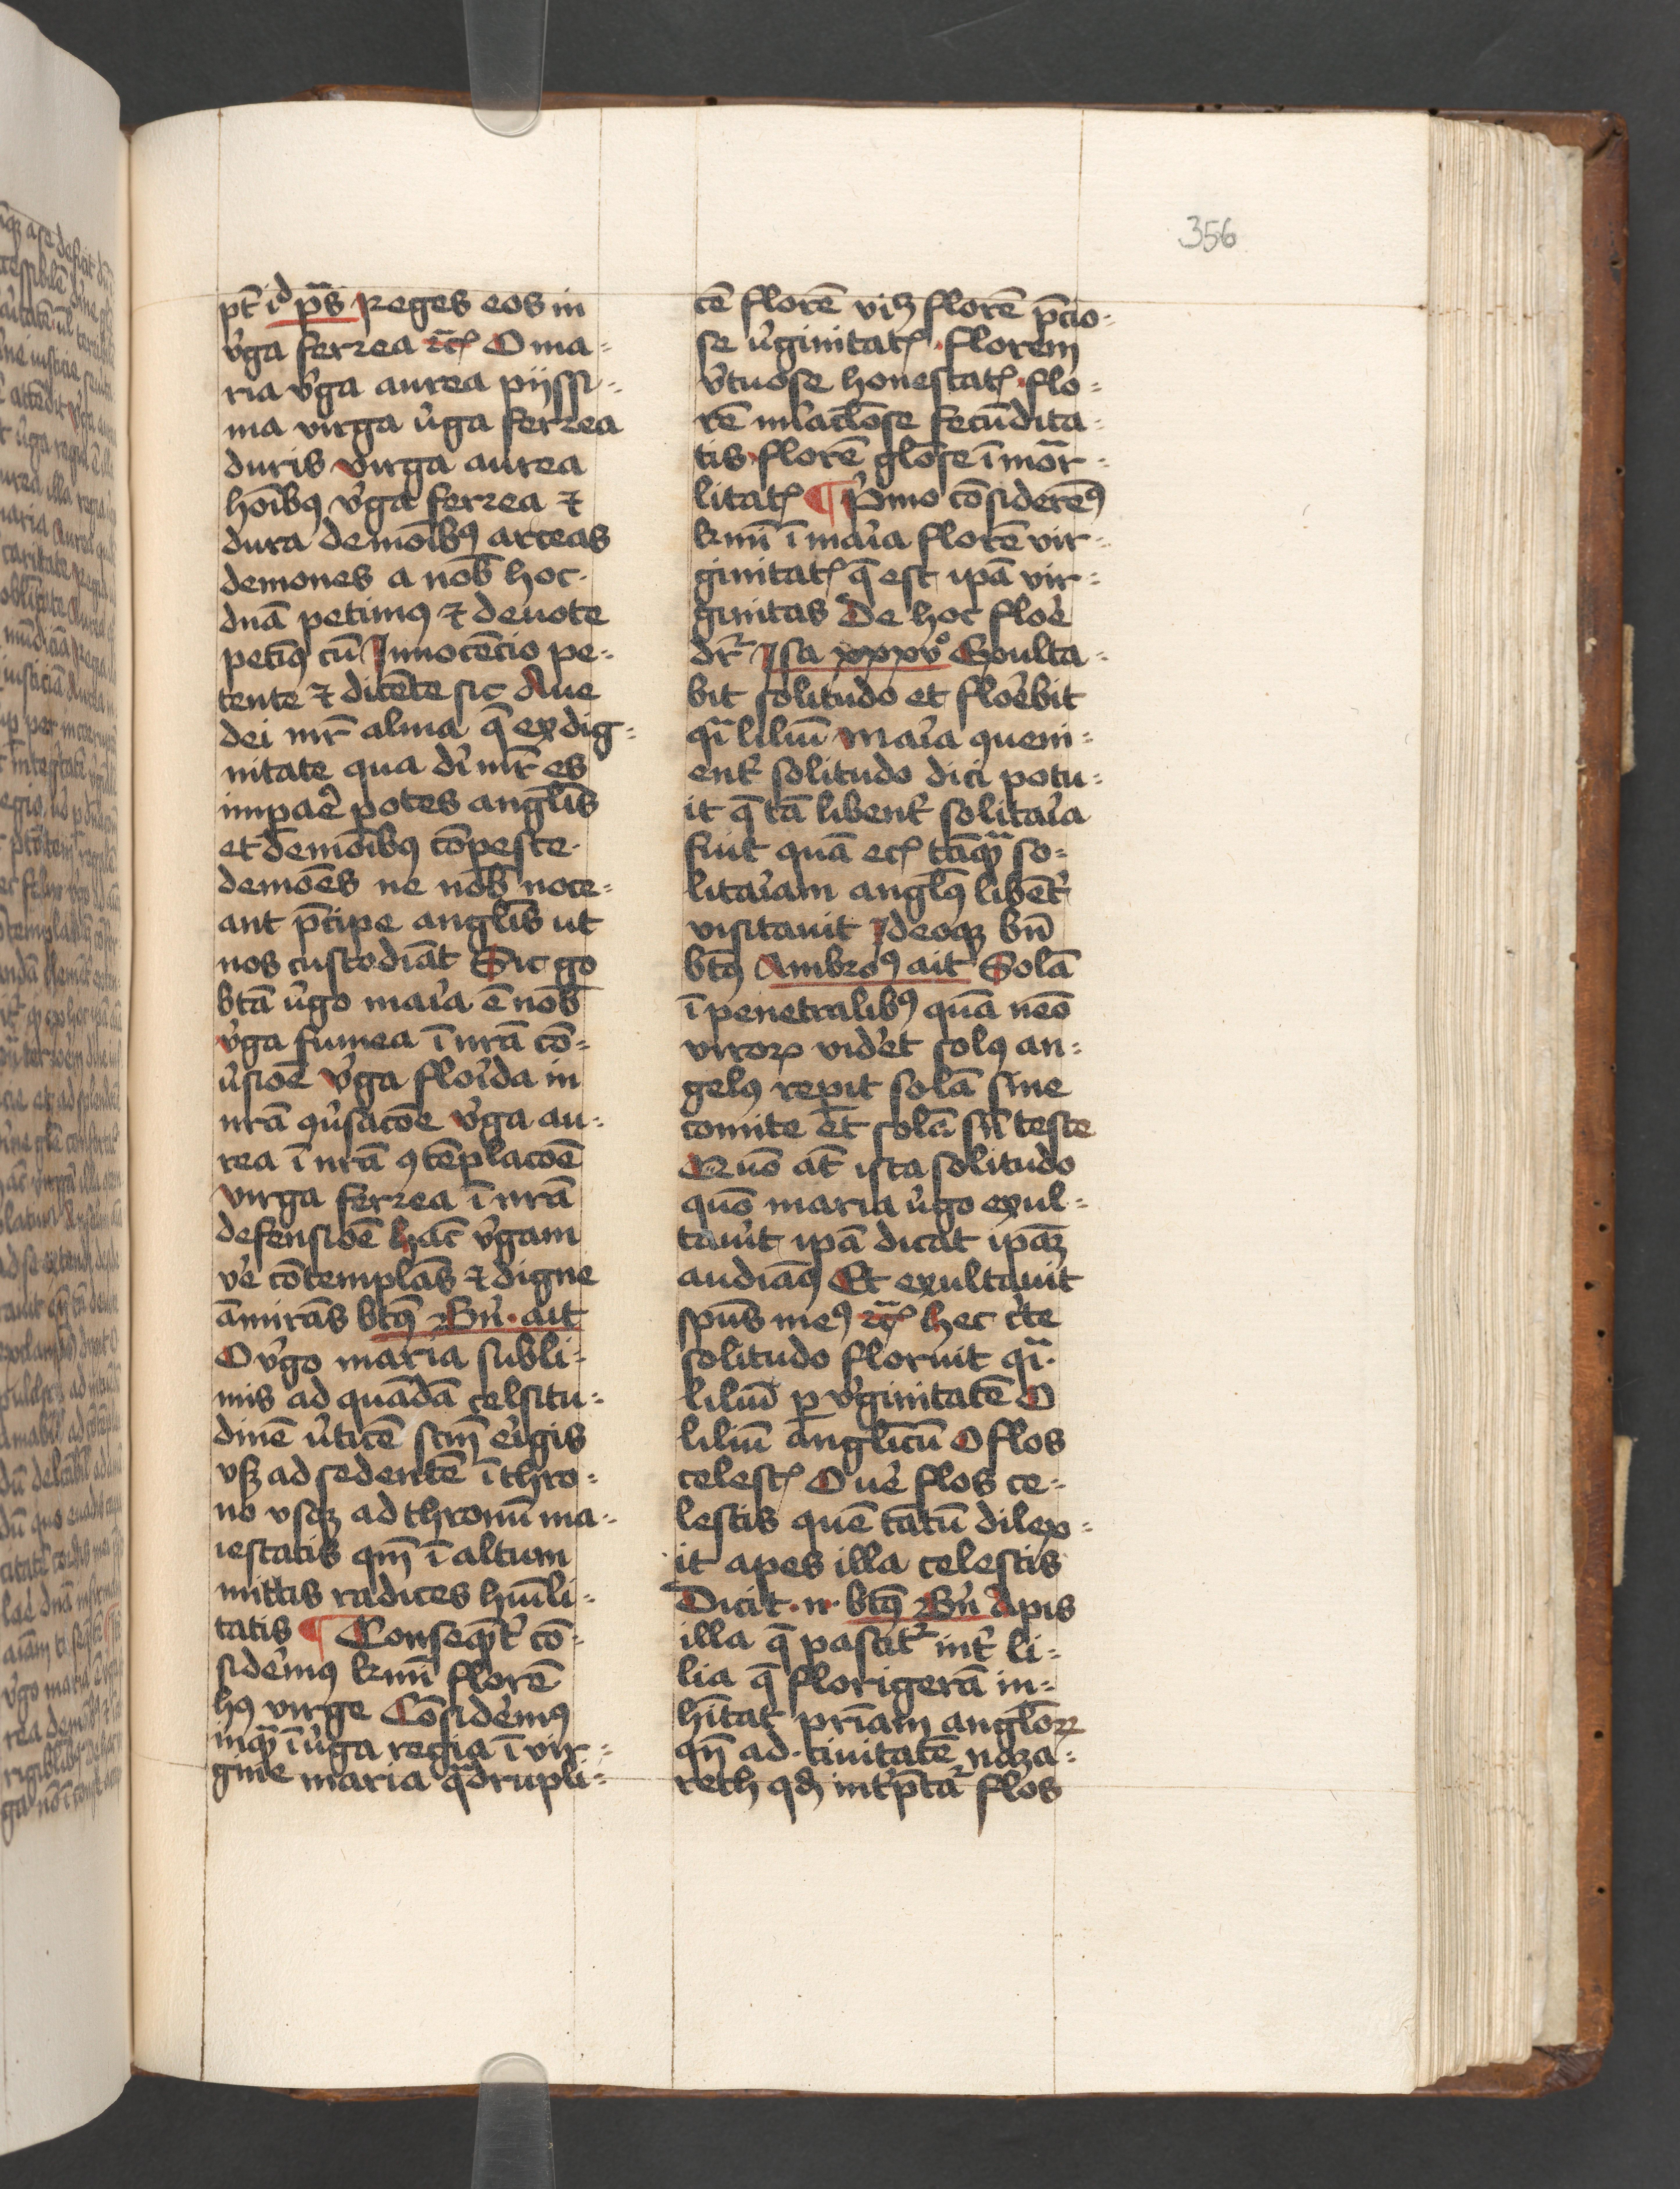 356
pt̄ id p̄s Reges eos in
v̓ga ferrea ⁊c̄ O ma=
ria v̓ga aurea pijssi=
ma virga v̓ga ferrea
duris virga aurea
hoībꝰ v̓ga ferrea ⁊
dura demoībꝰ arceas
demones a nob̄ hoc
dnā petimꝰ ⁊ deuote
petimꝰ cū Innocēcio pe=
tente ⁊ dicēte sic Aue
dei mr̄ alma q̄ ex dig=
nitate qua di mr̄ es
impar̓e potes angl̄is
et demoībꝰ cōpesce
demōes ne nob̄ noce=
ant p̄cipe angl̄is ut
nos custodiāt Sic go
btā v̓go mar̓ia ē nob̄
v̓ga fumea ī nrā cō=
v̓sioē v̓ga flor̓ida in
nrā ꝯv̓sacōe v̓ga au=
rea ī nrā ꝯtēplacōē
virga ferrea ī nrā
defensiōē hāc v̓gam
ve̓ cōtemplās ⁊ digne
āmirās btꝰ Bn̄ ait
O v̓go maria subli=
mis ad quādā celsitu=
dinē v̓ticē scm̄ er̓igis
vsqꝫ ad sedentē ī thro=
no vsqꝫ ad thronū ma=
iestatis qm̄ ī altum
mittis radices hūili=
tatis ¶ Conseqn̄t̓ cō=
sider̓emꝰ kmī florē
hꝰ virge Cōsider̓emꝰ
inqͣ ī v̓ga regia ī vir=
gine maria qͣdrupli=
cē florē viꝫ florē p̄cio=
se v̓ginitatꝭ florem
v̓tuose honestatꝭ flo=
rē mi̓aclōse fecūdita=
tis florē glōse īmōr=
litatꝭ ¶ P̓mo cōsiderēꝰ
kmī ī mar̓ia florē vir=
ginitatꝭ q̄ est ipā vir=
ginitas De hoc flor̓e
dr̄ Isa xxxv° Exulta=
bit solitudo et flor̓ebit
qͣi liliū Mar̓ia queni=
ent̓ solitudo dici potu=
it q̄ tā libent̓ solitar̓ia
fuit quā ecꝭ tāqͣ so=
litar̓iam anglꝰ libēt̓
visitauit Ideoqꝫ bn̄
btꝰ Ambroꝰ ait Solā
ī penetralibꝰ quā nēo
viroꝝ vider̓et solꝰ an=
gelꝰ rep̓it solā sine
comite et̄ solā sn̄ teste
Quō at̄ ista solitudo
quō maria v̓go exul=
tauit ipā dicat ipāꝫ
audiāꝰ Et exultauit
spūs meꝰ ⁊c̄ hec c̓te
solitudo floruit qͣi
liliū p v̓ginitatē O
liliū anglicū O flos
celestꝭ O ve̓ flos ce=
lestis quē tātū dilex=
it apes illa celestis
Dicit n btꝰ Bn̄ Apis
illa q̄ pascit᷑ int̓ li=
lia q̄ florigerā in=
hītat pr̄iam angloꝝ
qn̄ ad ciuitatē naza=
reth qđ int̓p̄ta᷑ flos